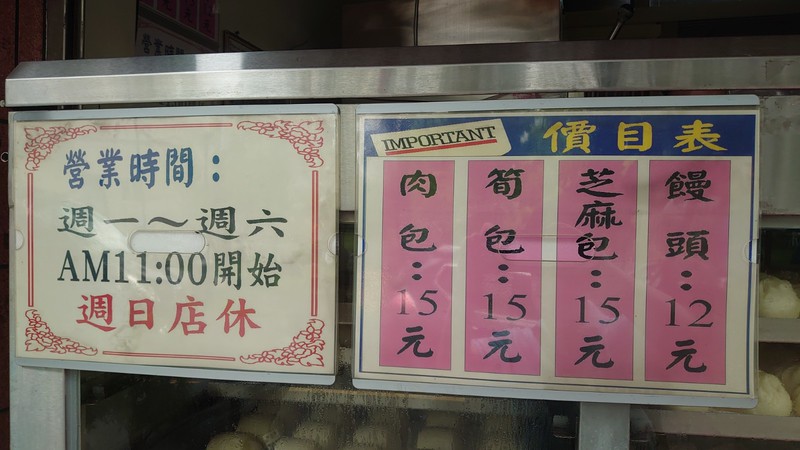 營業時間
營業時間：
週一～週六
AM11:00開始
週日店休
IMPORTANT
價目表
肉包：15元
筍包：15元
芝麻包：15元
饅頭：12元